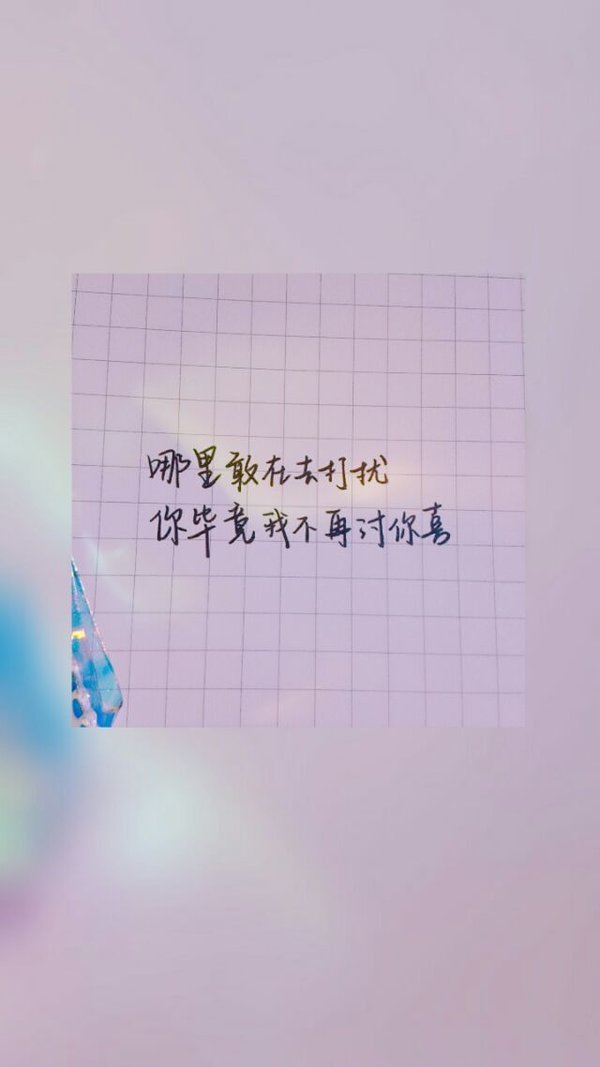 哪里敢在去打扰
你毕竟我不再讨你喜